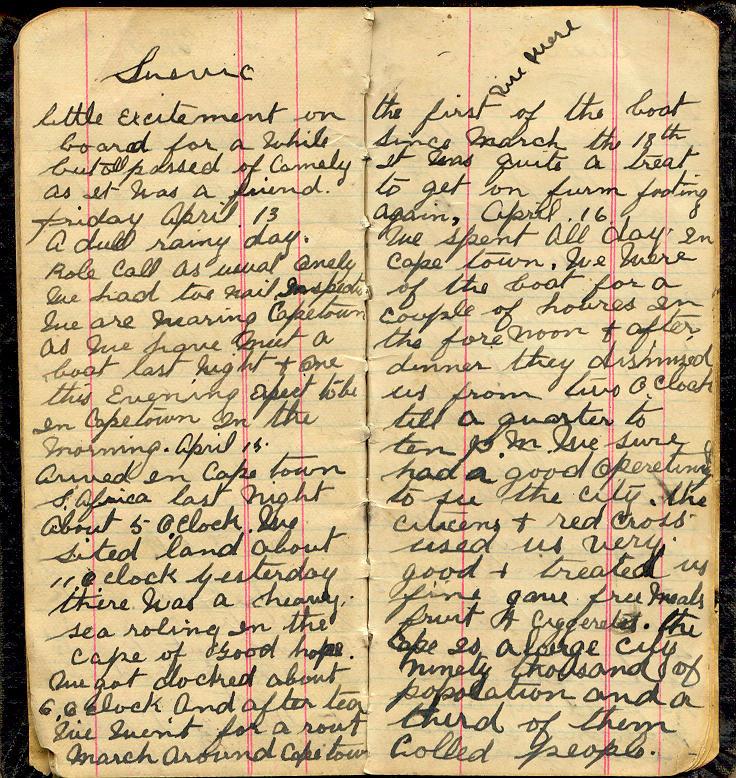 Suevic
little Excitement on
board for a While
but all passed of Comely
as it Was a friend.
Friday April 13
A dull rainy day.
Role Call as usual onely
We had toe nail Inspection
We are nearing Capetown
As We signe Meet a
boat last Night + one
this Evening Expect to be
in Capetown In the
Morning. April 15.
Arived en Cape town
S. Africa last Night
About 5 OClock. We
sited land about
11 Oclock yesterday
there Was a heavy.
sea roling in the
Cape of Good hope.
We got docked about
6, Oclock And after tea
We Went for a rout
March around Cape town
We Were
the first of the boat
since March the 13th
it Was quite a treat
to get on furm footing
again, April. 16.
We spent All day in
Cape town. We Were
of the boat for a
couple of houres in
the fore Noon + after
dinner they dismized
us from two OClock
till a quarter to
ten P.M. We sure
had a good Operetunity
to see the city. the
citizens + red Cross
used us very.
good + treated us
fine gave free Meals
fruit + Ciggeretes. the
Cape is a large City
Ninety thousand of
popolation and a
third of them
Colled people.